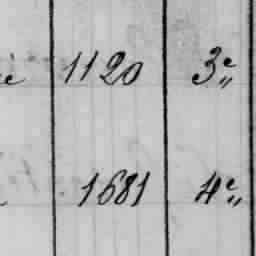 e 1120 3e„
1681 4e„